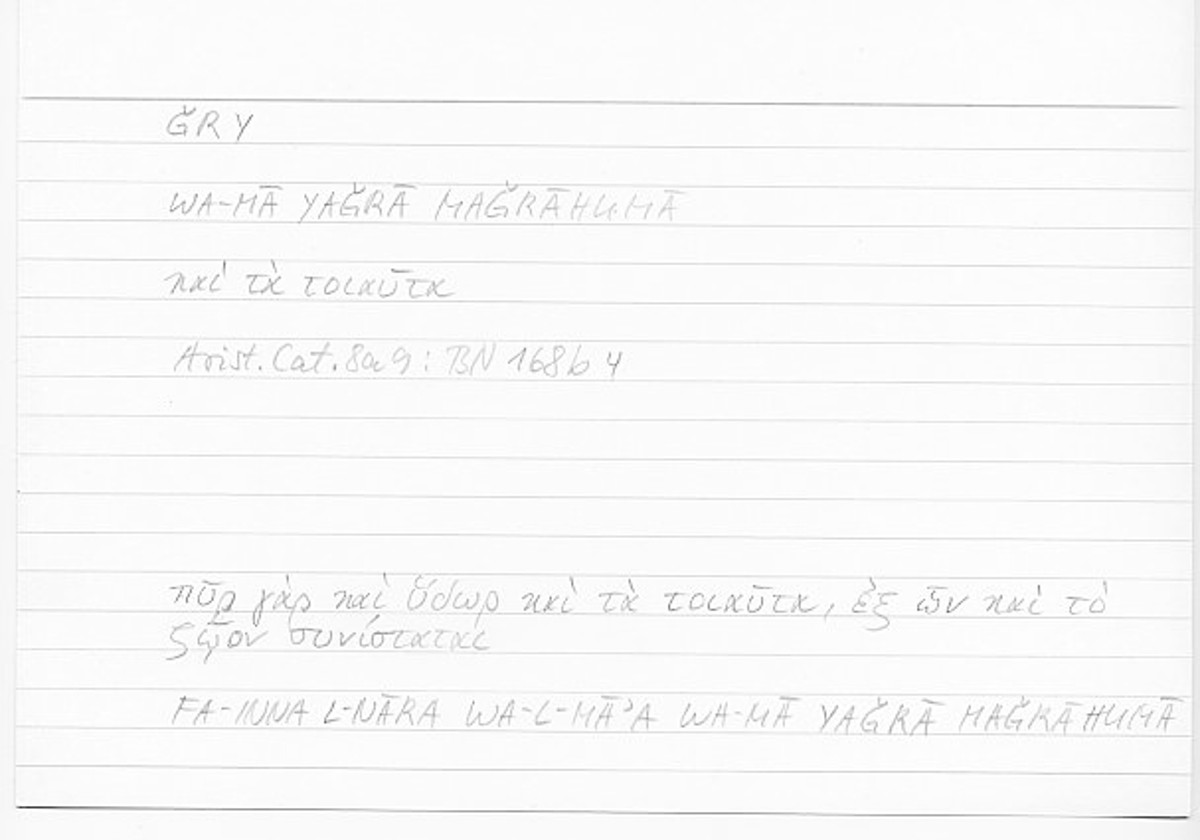 ǦRY
WA-MĀ YAǦRĀ MAǦRĀHUMĀ
καὶ τὰ τοιαῦτα
Arist. Cat. 8a9 : BN 168b 4
πῦρ γὰρ καὶ ὕδωρ καὶ τὰ τοιαῦτα, ἐξ ὧν καὶ τὸ
ζῷον συνίσταται
FA-INNA L-NĀRA WA-L-MĀʾA WA-MĀ YAǦRĀ MAǦRĀHUMĀ